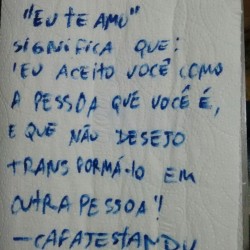 "EU TE AMO"
SIGNIFICA QUE:
'EU ACEITO VOCÊ COMO
A PESSOA QUE VOCÊ É,
E QUE NÃO DESEJO
TRANSFORMÁ-LO EM
OUTRA PESSOA'!
—CAFAJESTANDU